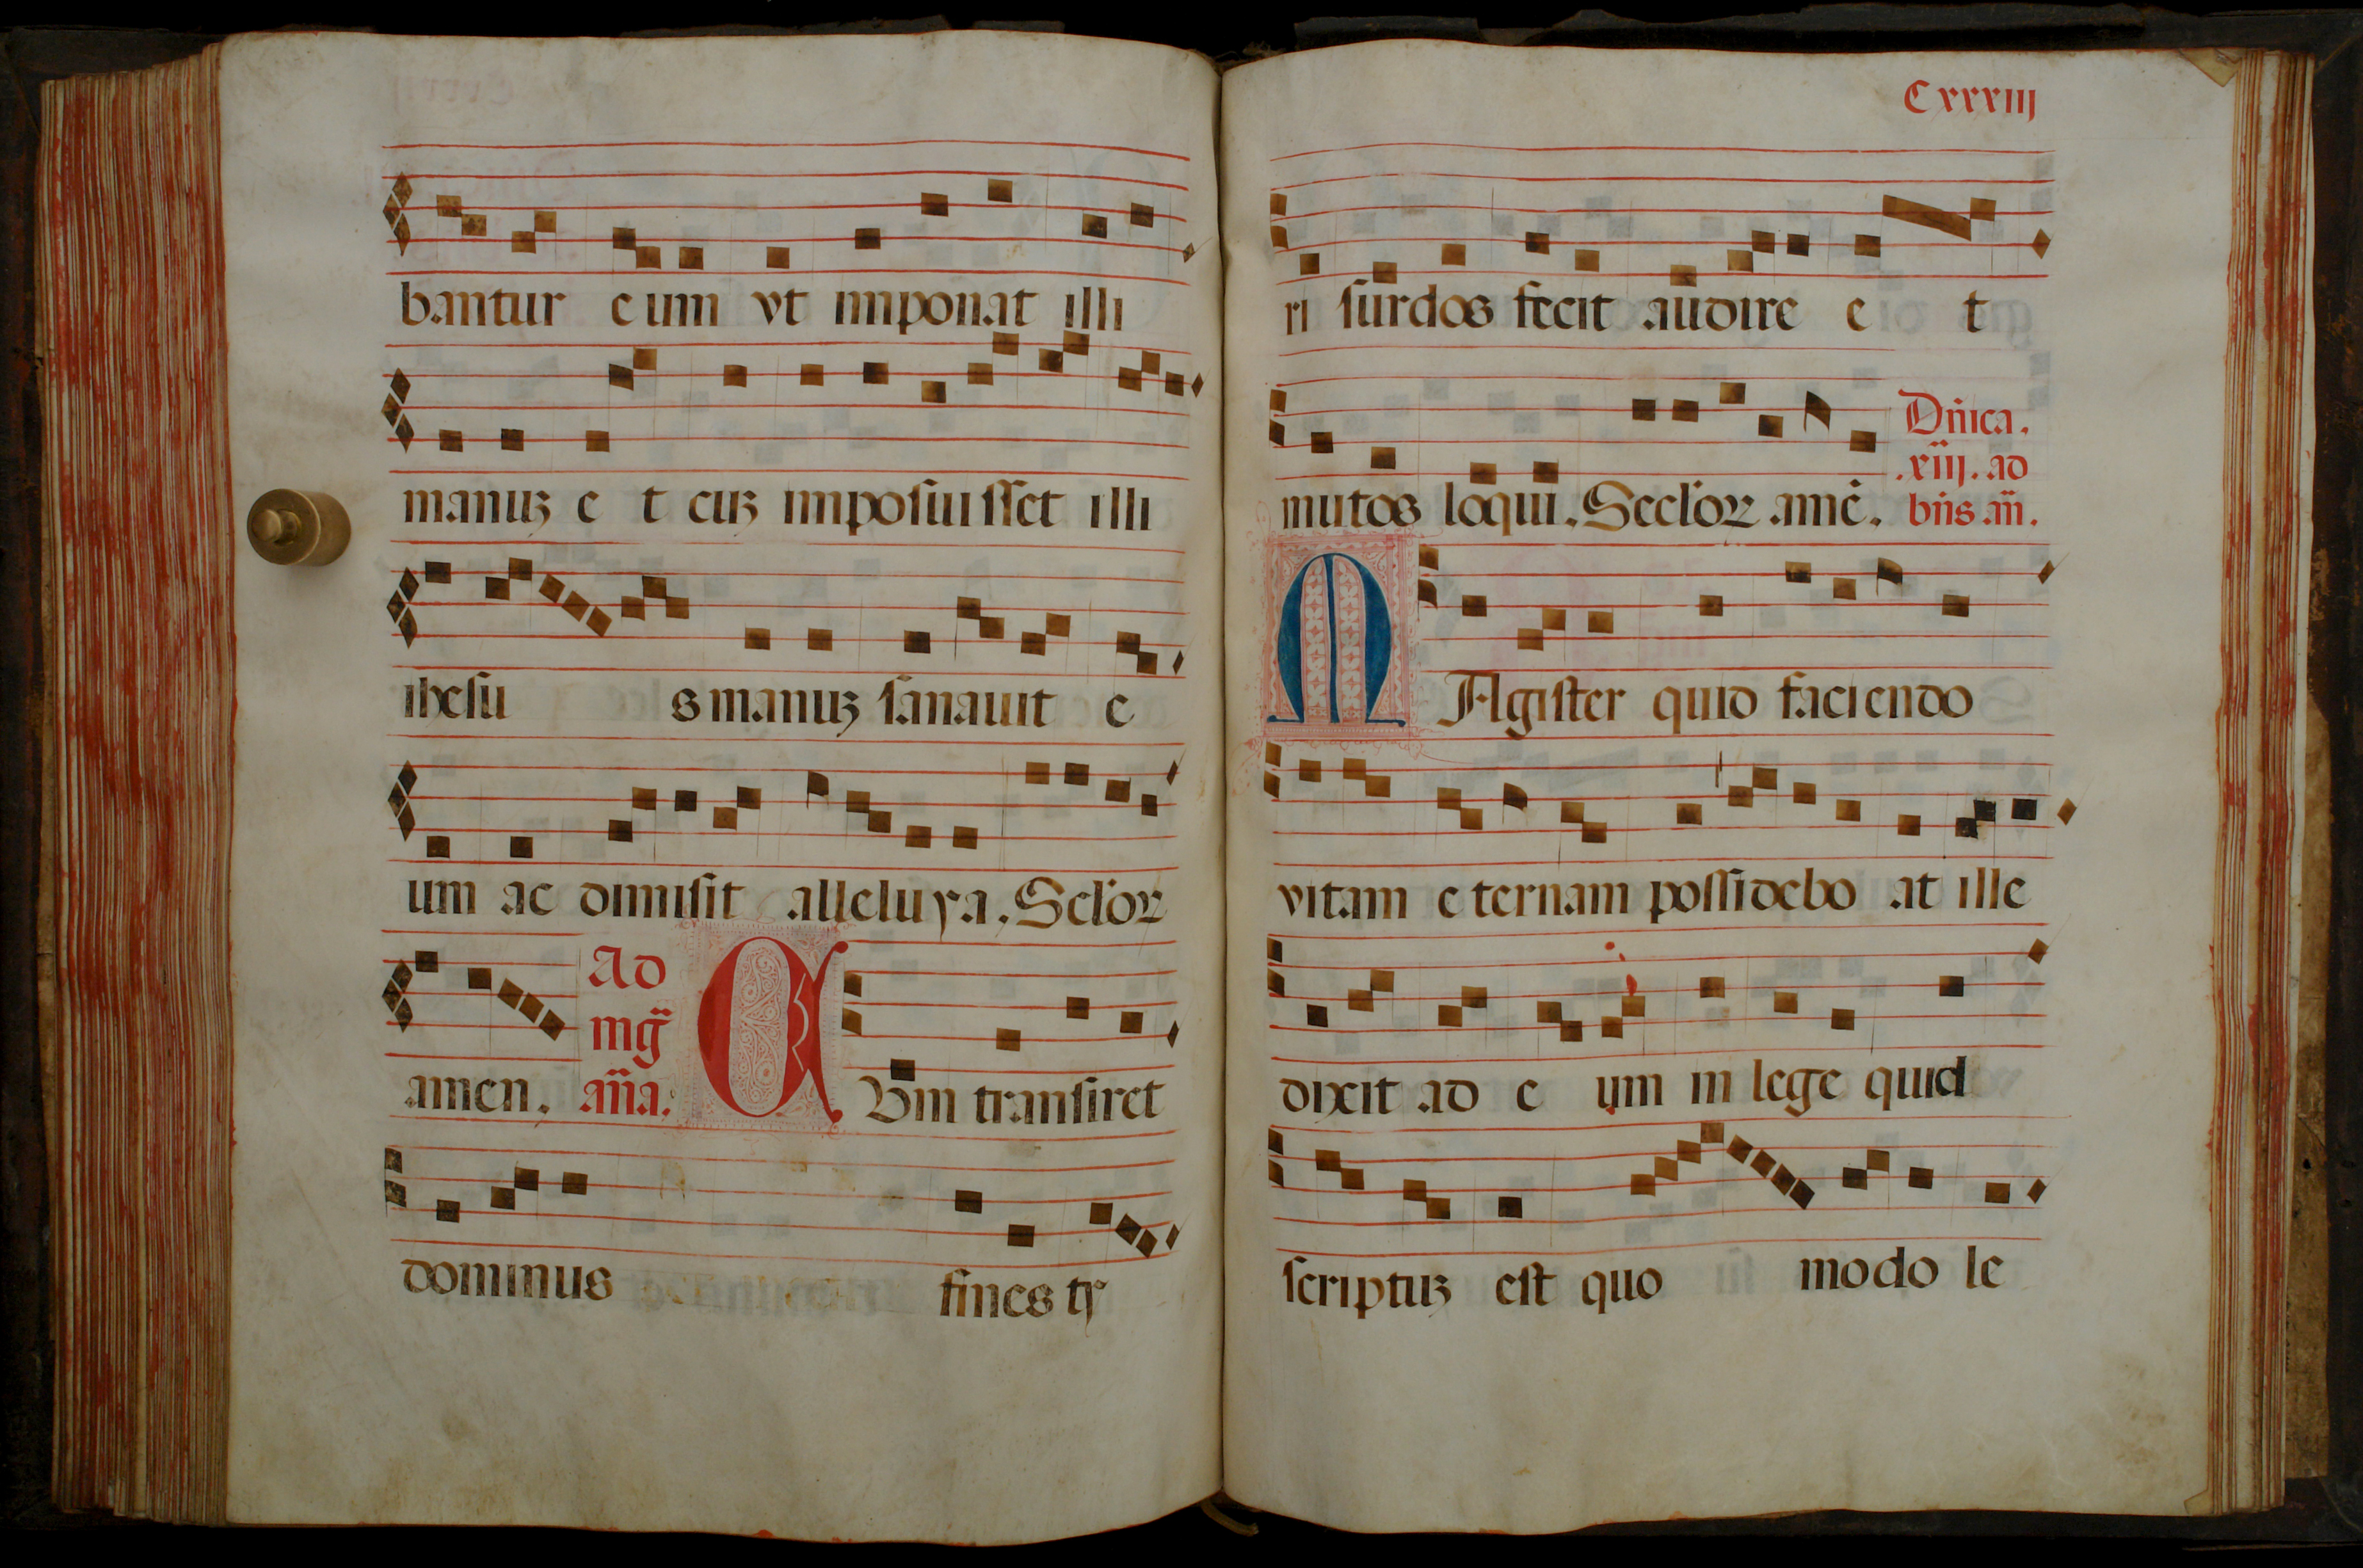 bantur e um vt imponat illi
manuꝫ e t cuꝫ imposuisset illi
ihesu s manuꝫ sanauit e
um ac dimisit alleluya. Sclöꝝ
amen.
Ad
mḡ
ana.
CVm transiret
dominus fines tꝭ
Cxxxiij
ri surdos fecit audire e t
mutos loqui. Seclöꝝ amē.
Dñica.
.xiij. ad
bñs añ.
MAgister quid faciendo
vitam e ternam possidebo at ille
dixit ad e um in lege quid
scriptuꝫ est quo modo le